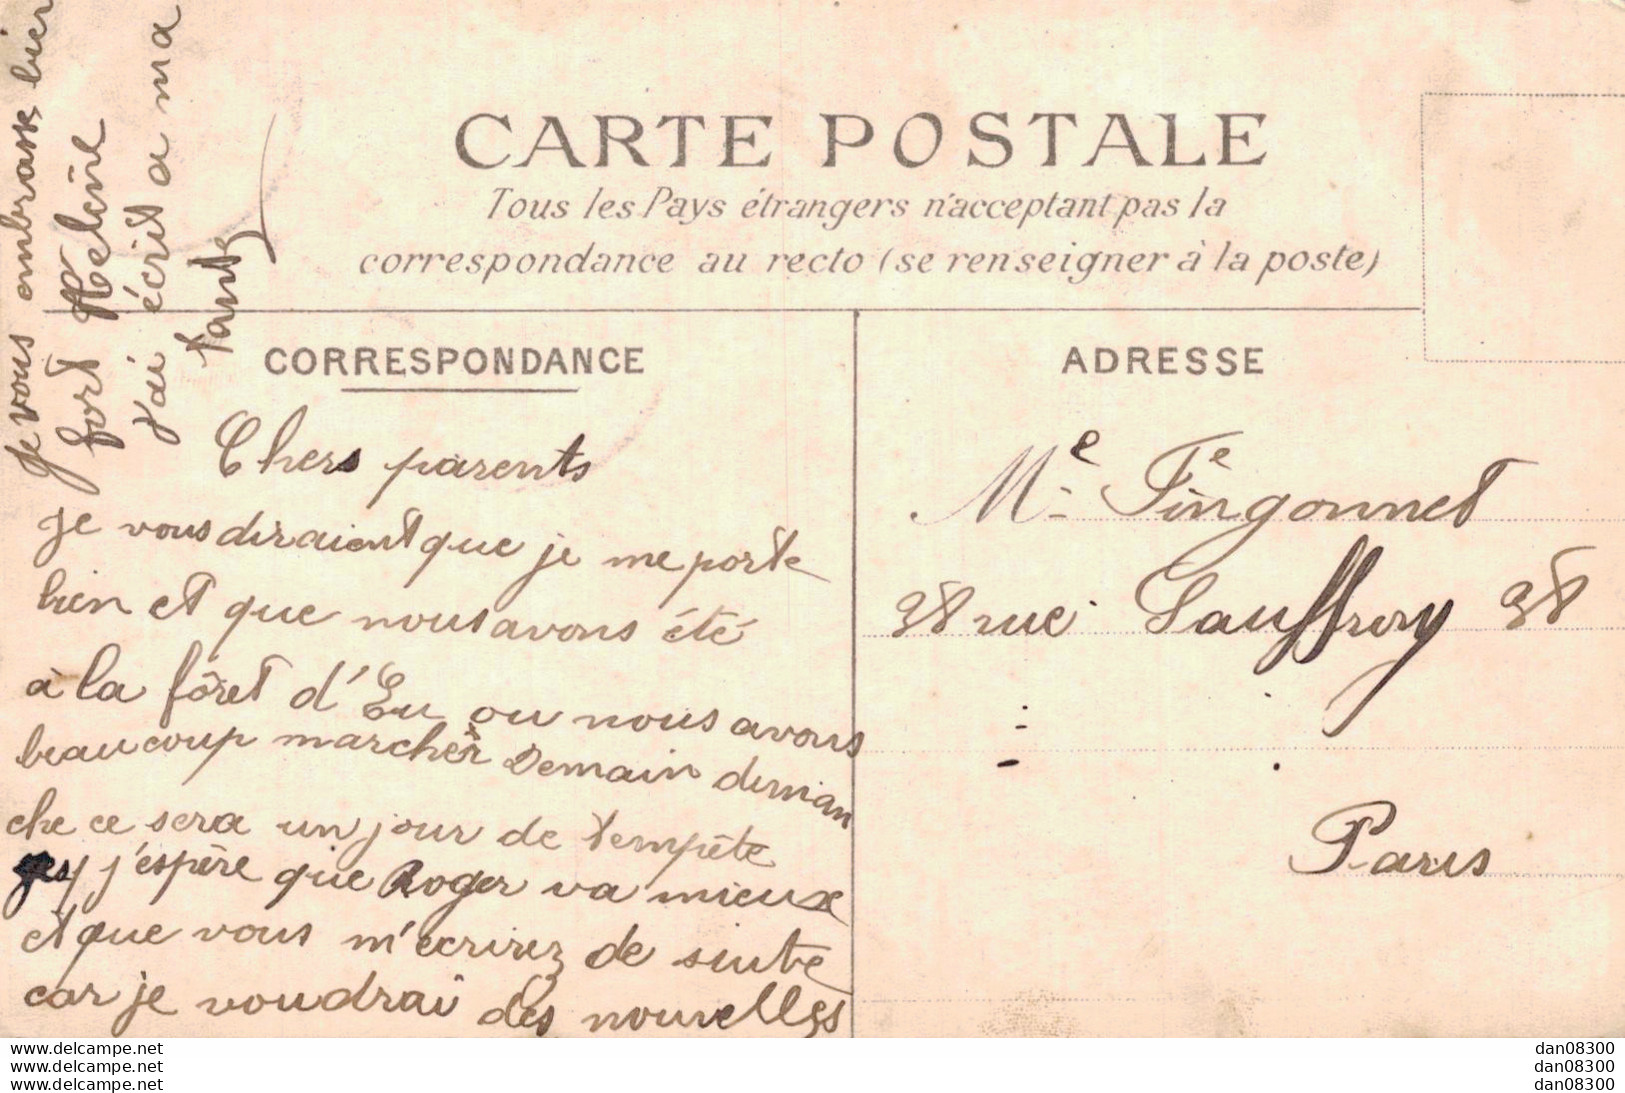 CARTE POSTALE
Tous les Pays étrangers n'acceptant pas la
correspondance au recto (se renseigner à la poste)
CORRESPONDANCE
Chers parents
je vous diraient que je me porte
bien et que nous avons été
à la fôret d'Eu ou nous avons
beaucoup marcher Demain diman
che ce sera un jour de tempête
j'espère que Roger va mieux
et que vous m'écrirez de suite
car je voudrai des nouvelles
Je vous embrasse bien
fort Helène
J'ai écrit a ma
tante
ADRESSE
Me Fingonnet
38 rue Gauffroy 38
Paris
www.delcampe.net
www.delcampe.net
www.delcampe.net
dan08300
dan08300
dan08300